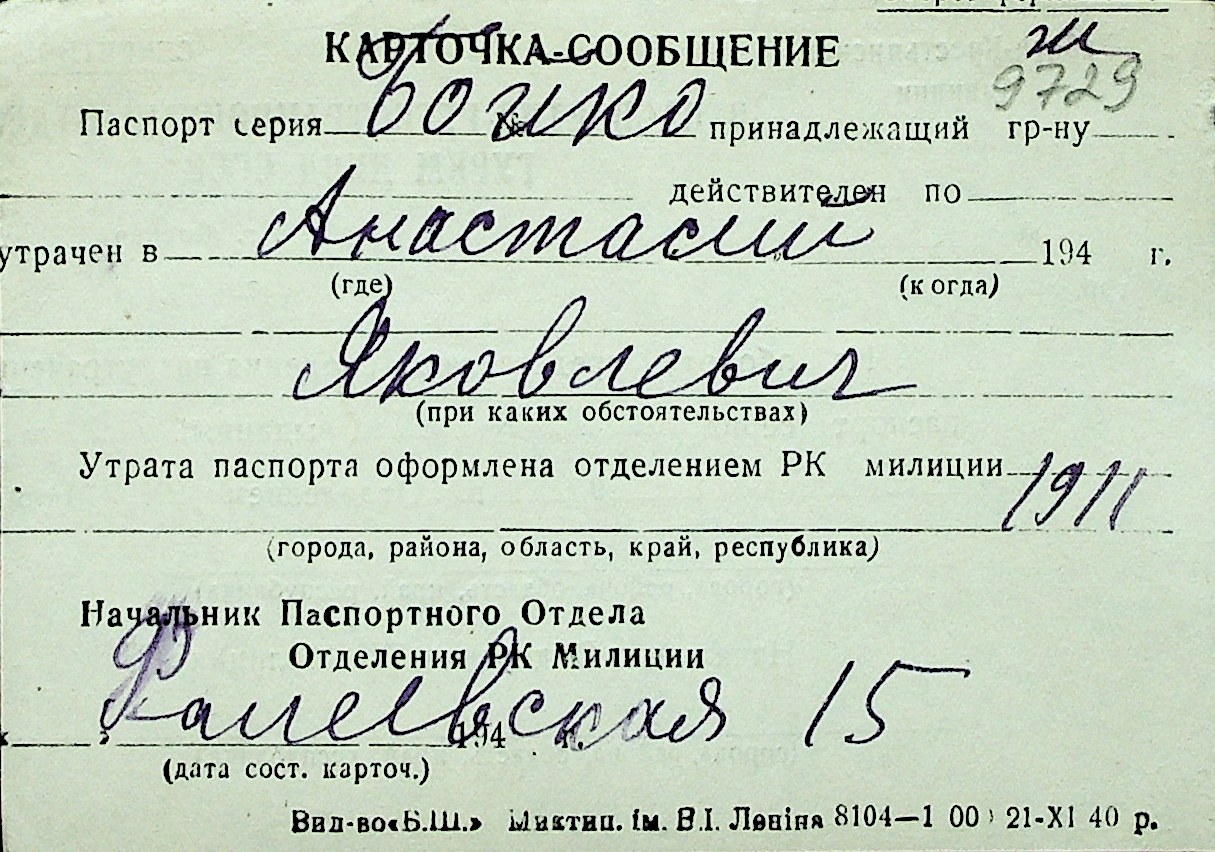 КАРТОЧКА-СООБЩЕНИЕ
ж
9729
Бойко
Паспорт серия № принадлежащий гр-ну
действителен по
Анастасий
утрачен в 194 г.
(где) (когда)
Яковлевич
(при каких обстоятельствах)
Утрата паспорта оформлена отделением РК милиции
1911
(города, района, область, край, республика)
Начальник Паспортного Отдела
Отделения РК Милиции
15
194 г.
(дата сост. карточ.)
Вид-во «Б.Ш.» Миктип. ім. В.І. Леніна 8104—1 00 21-XI 40 р.